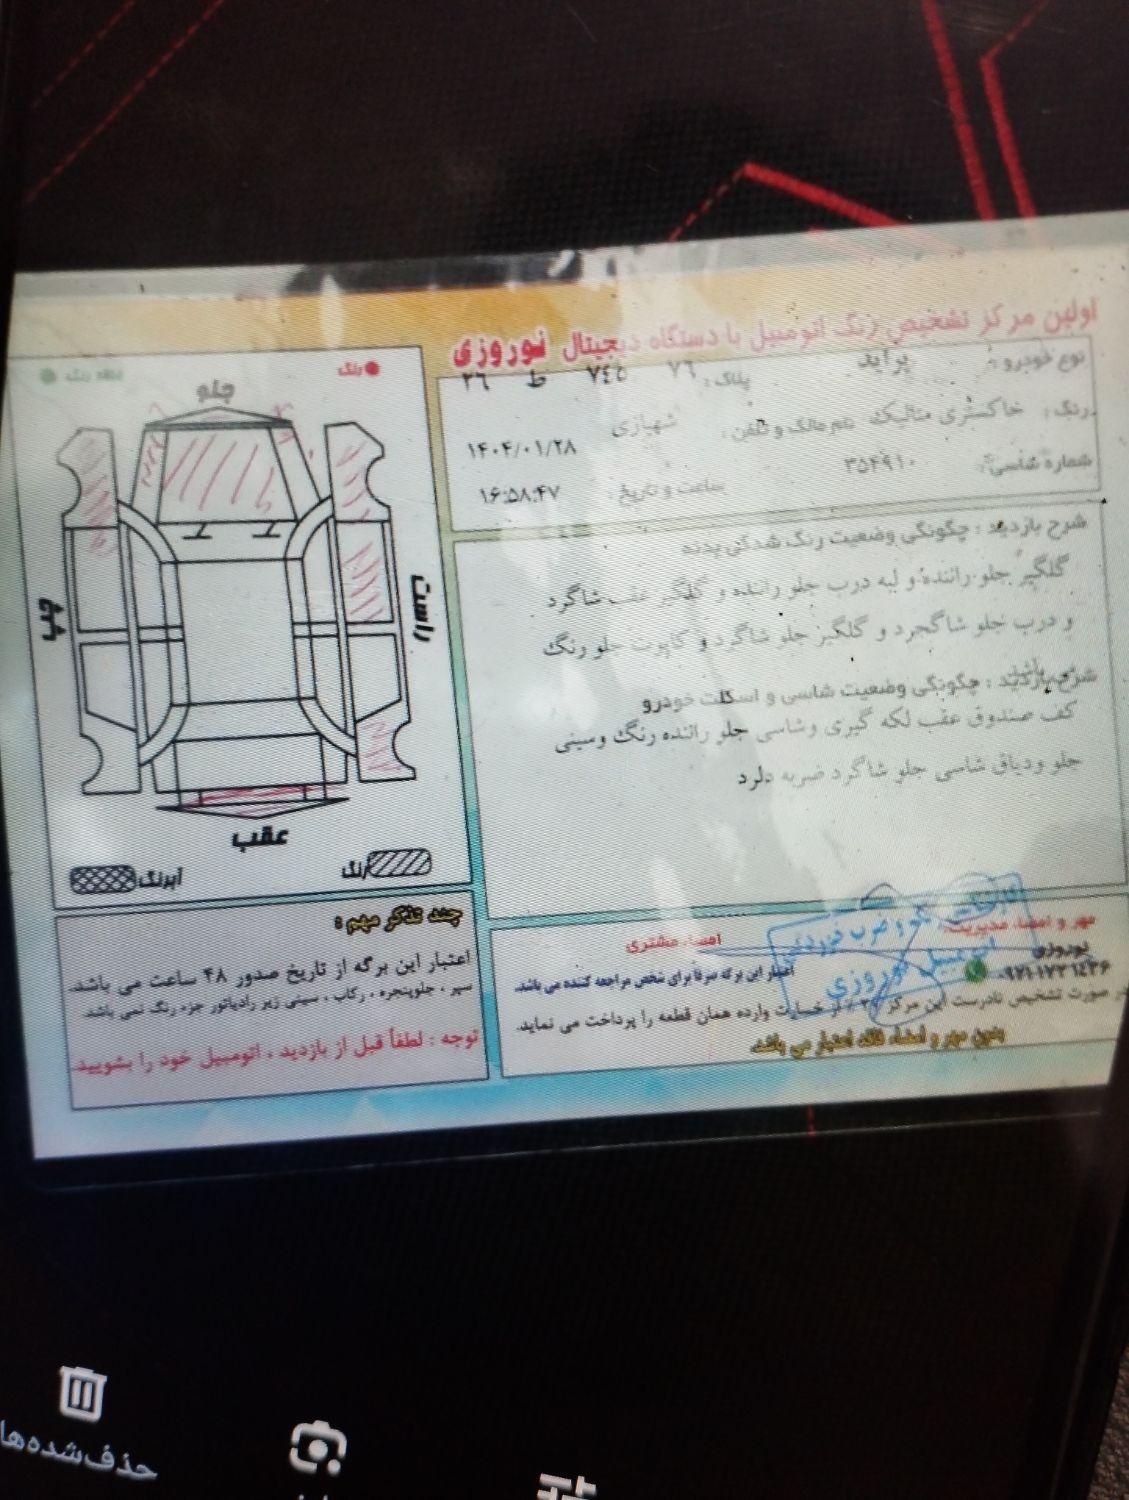 اولین مرکز تشخیص رنگ اتومبیل با دستگاه دیجیتال نوروزی
نوع خودرو : پراید پلاک : ۷۶ ۷۴۵ ط ۲۶
رنگ : خاکستری متالیک نام مالک و تلفن : شهبازی ۱۴۰۴/۰۱/۲۸
شماره شاسی : ۳۵۴۹۱۰ ساعت و تاریخ : ۱۶:۵۸:۴۷
شرح بازدید : چگونگی وضعیت رنگ شدگی بدنه
گلگیر جلو راننده و لبه درب جلو راننده و گلگیر عقب شاگرد
و درب جلو شاگجرد و گلگیر جلو شاگرد و کاپوت جلو رنگ
شرح بازدید : چگونگی وضعیت شاسی و اسکلت خودرو
کف صندوق عقب لکه گیری وشاسی جلو راننده رنگ وسینی
جلو ودیاق شاسی جلو شاگرد ضربه دلرد
رنگ
جلو
چپ
راست
عقب
رنگ
آبرنگ
چند تذکر مهم :
اعتبار این برگه از تاریخ صدور ۴۸ ساعت می باشد.
سپر ، جلوپنجره ، رکاب ، سینی زیر رادیاتور جزء رنگ نمی باشد.
توجه : لطفاً قبل از بازدید ، اتومبیل خود را بشویید.
مهر و امضاء مدیریت : امضاء مشتری
نوروزی
اعتبار این برگه صرفاً برای شخص مراجعه کننده می باشد.
در صورت تشخیص نادرست این مرکز از خسارت وارده همان قطعه را پرداخت می نماید.
بدون مهر و امضاء فاقد اعتبار می باشد.
اتومبیل نوروزی
حذف‌شده‌ها